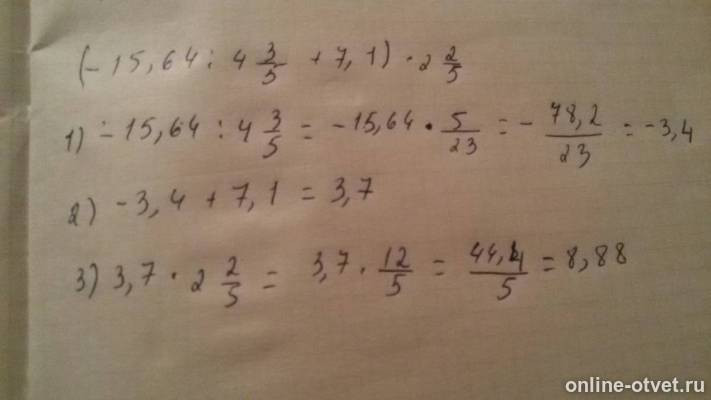 (-15,64 : 4 3/5 + 7,1) · 2 2/5
1) -15,64 : 4 3/5 = -15,64 · 5/23 = - 78,2/23 = -3,4
2) -3,4 + 7,1 = 3,7
3) 3,7 · 2 2/5 = 3,7 · 12/5 = 44,4/5 = 8,88
online-otvet.ru